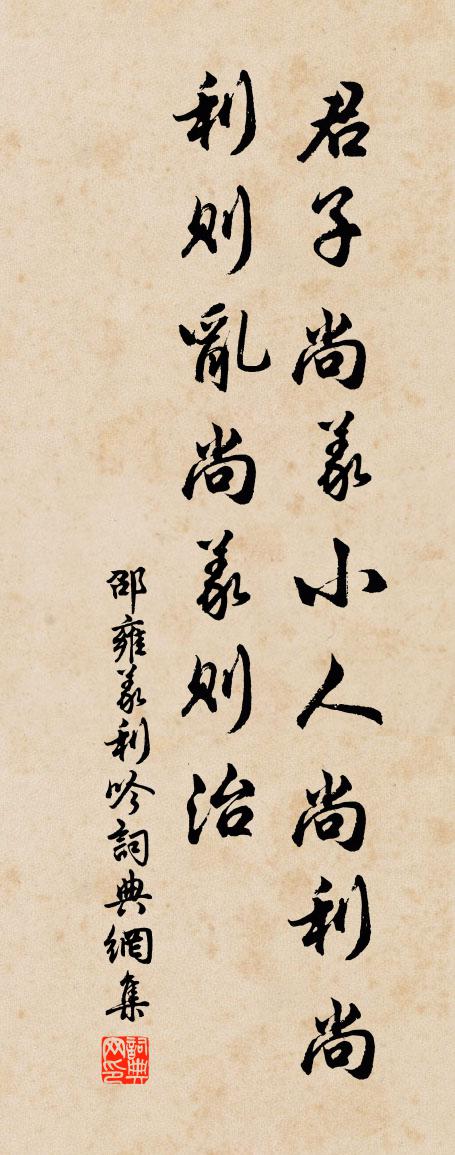 君子尚義小人尚利尚
利則亂尚義則治
邵雍義利吟詞典網集
詞典网印